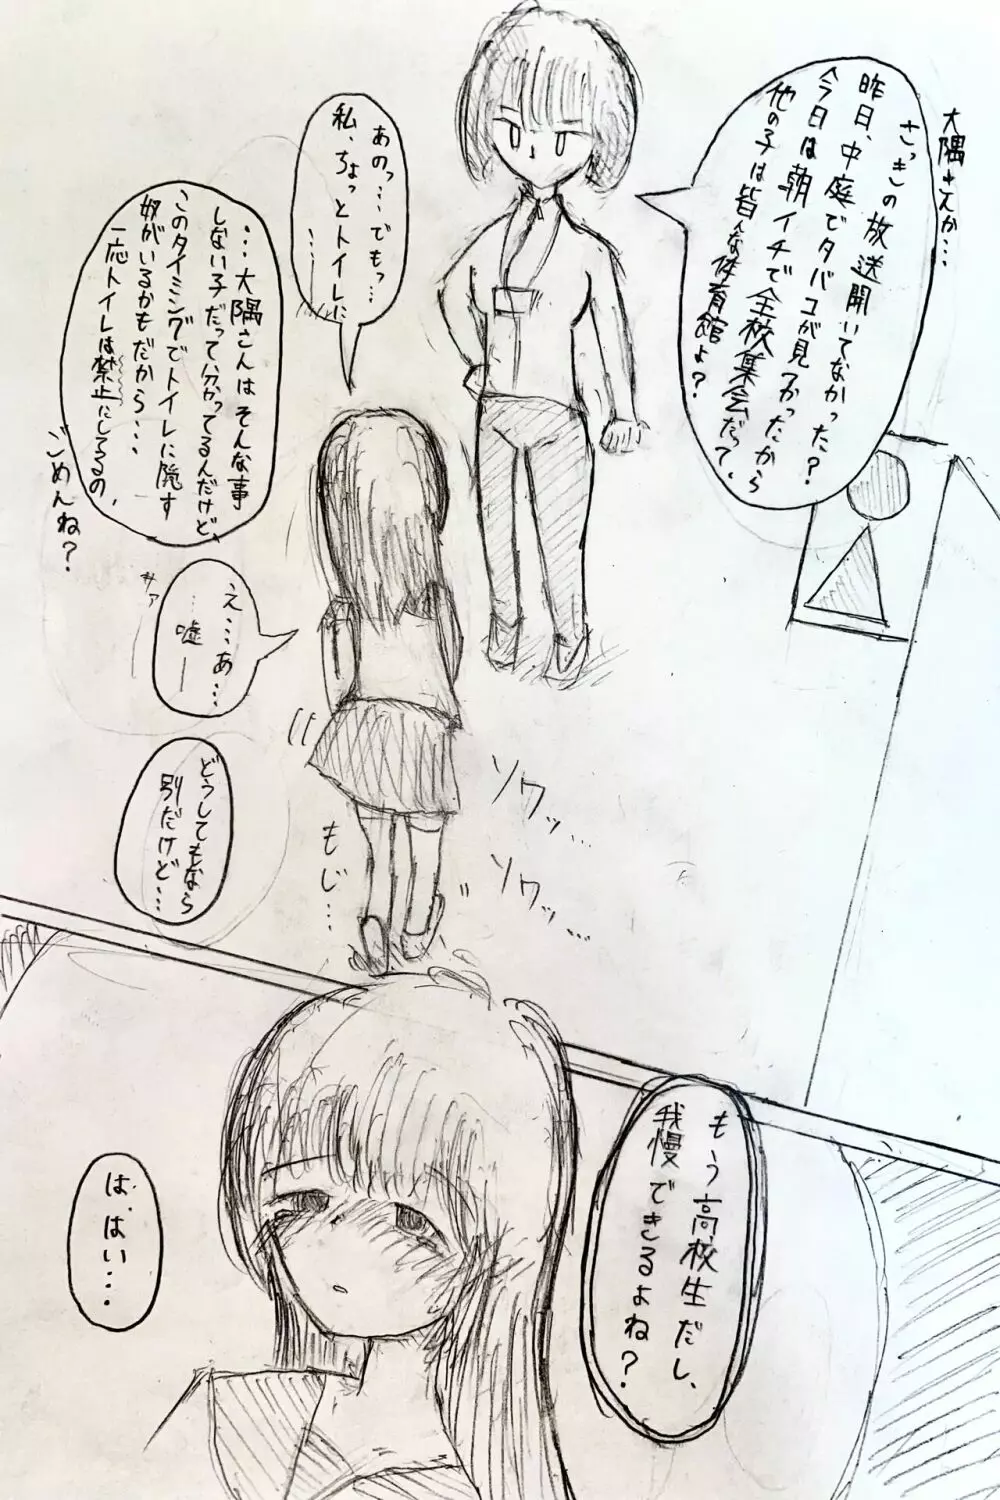 大隅さんか…
さっきの放送聞いてなかった？
昨日、中庭でタバコが見つかったから
今日は朝イチで全校集会だって、
他の子は皆んな体育館よ？
あのっ…でもっ…
私、ちょっとトイレに
…
…大隅さんはそんな事
しない子だって分かってるんだけど、
このタイミングでトイレに隠す
奴がいるかもだから…
一応トイレは禁止にしてるの、
ごめんね？
え…あ…
…嘘—
サァ
どうしてもなら
別だけど…
ソワッ…
ソワッ…
もじ…
もう高校生だし、
我慢できるよね？
は、はい…